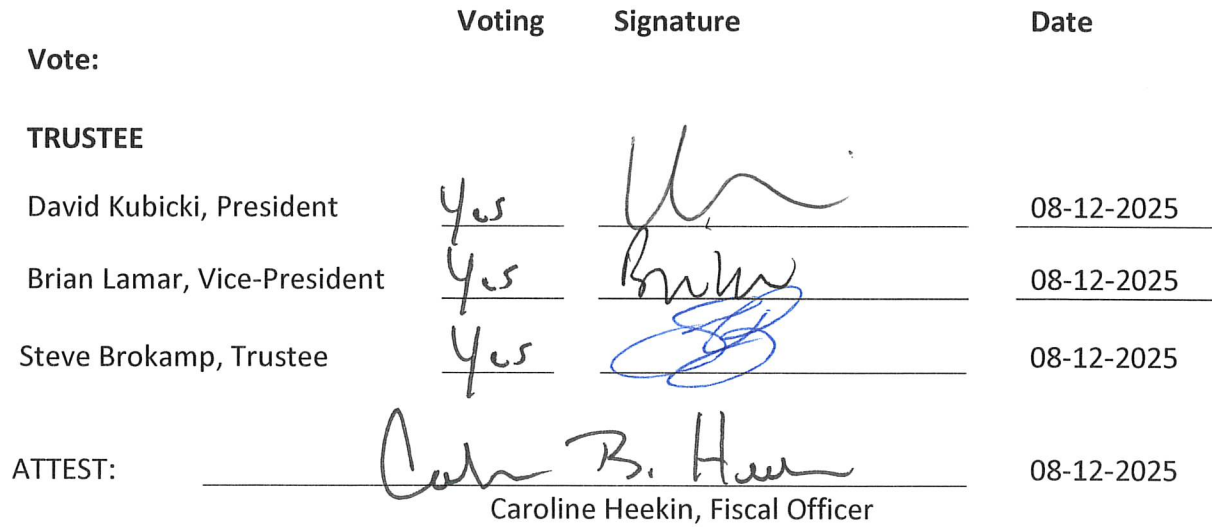 Voting Signature Date
Vote:
TRUSTEE
David Kubicki, President Yes 08-12-2025
Brian Lamar, Vice-President Yes 08-12-2025
Steve Brokamp, Trustee Yes 08-12-2025
ATTEST: B. 08-12-2025
Caroline Heekin, Fiscal Officer